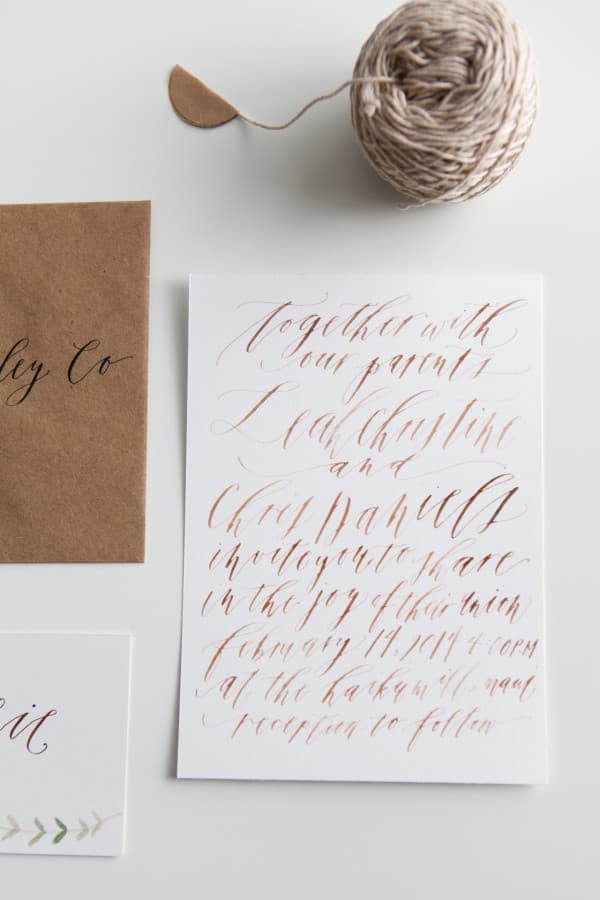 together with
our parents
Leah Christine
and
Chris Daniels
invite you to share
in the joy of their union
february 14, 2014 4:00PM
at the haiku mill, maui
reception to follow
ley Co
ie